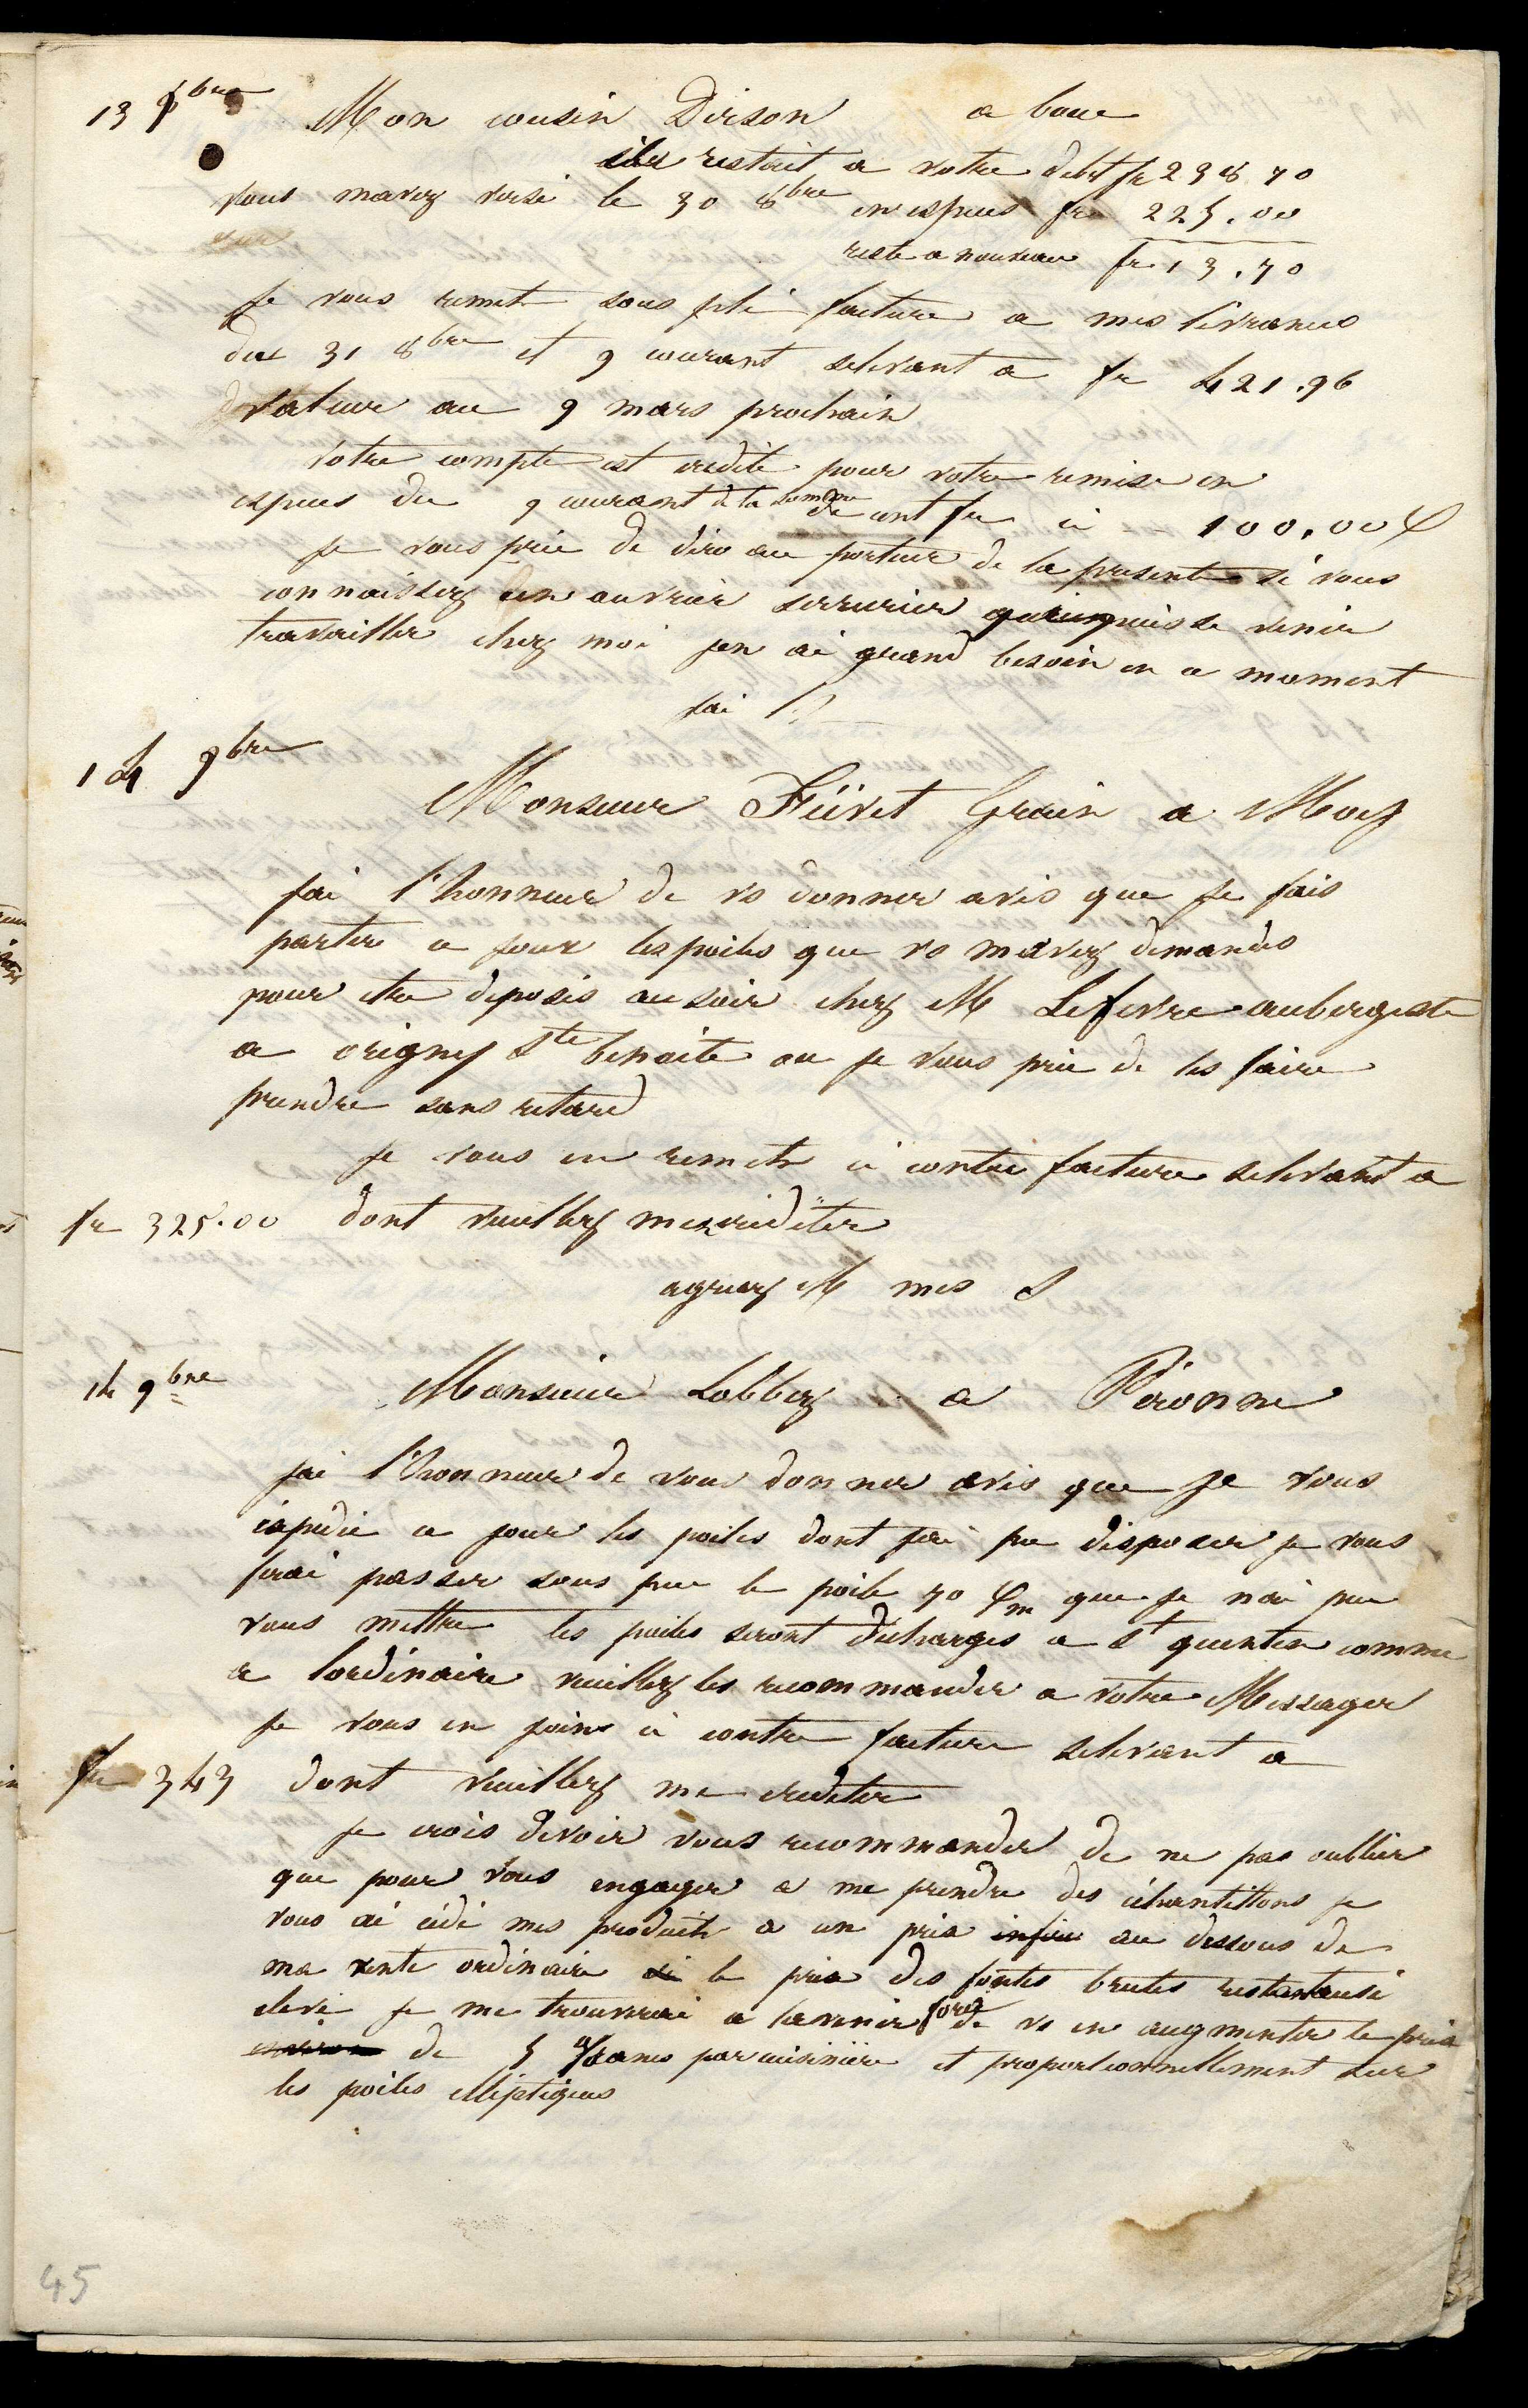 13 9bre Mon cousin Dirson a boue
il restait a votre debit fr 238.70
vous mavez versé le 30 8bre en espèces fr 225.00
reste a nouveau fr 13.70
Je vous remets sous pli facture a mes livrances
du 31 8bre et 9 courant selevant a fr 421.96
valeur au 9 mars prochain
Votre compte est credité pour votre remise en
espèces du 9 courant de la somme de cent fr ci - 100.00
Je vous prie de dire au porteur de la presente si vous
connaissez un ouvrier serrurier qui puisse venir
travailler chez moi jen ai grand besoin en ce moment
jai l
14 9bre
Monsieur Fiévet Grain a Moÿ
jai l'honneur de vs donner avis que je fais
partir ce jour les poiles que vs mavez demandés
pour etre déposés au soir chez M Lefevre aubergiste
a origny Ste benoite ou je vous prie de les faire
prendre sans retard
Je vous en remets ci contre facture selevant a
fr 325.00 dont veuillez me créditer
agreez M mes S
14 9bre Monsieur Lobbez a Péronne
jai l'honneur de vous donner avis que je vous
éxpédie ce jour les poiles dont jai pu disposer je vous
ferai passer sous peu le poile 70 c/m que je nai pu
vous mettre les poiles seront déchargés a St quentin comme
a lordinaire veuillez les recommander a votre Messager
Je vous en joins ci contre facture selevant a
fr 343 dont veuillez me crediter
Je crois devoir vous recommander de ne pas oublier
que pour vous engager a me prendre des échantillons je
vous ai cédé mes produits a un prix au dessous de
ma vente ordinaire si le prix des fontes brutes restent ausi
elevé je me trouverai a lavenir forcé de vs en augmenter le prix
environ de 5 francs par cuisinière et proportionnellement sur
les poiles elliptiques
45